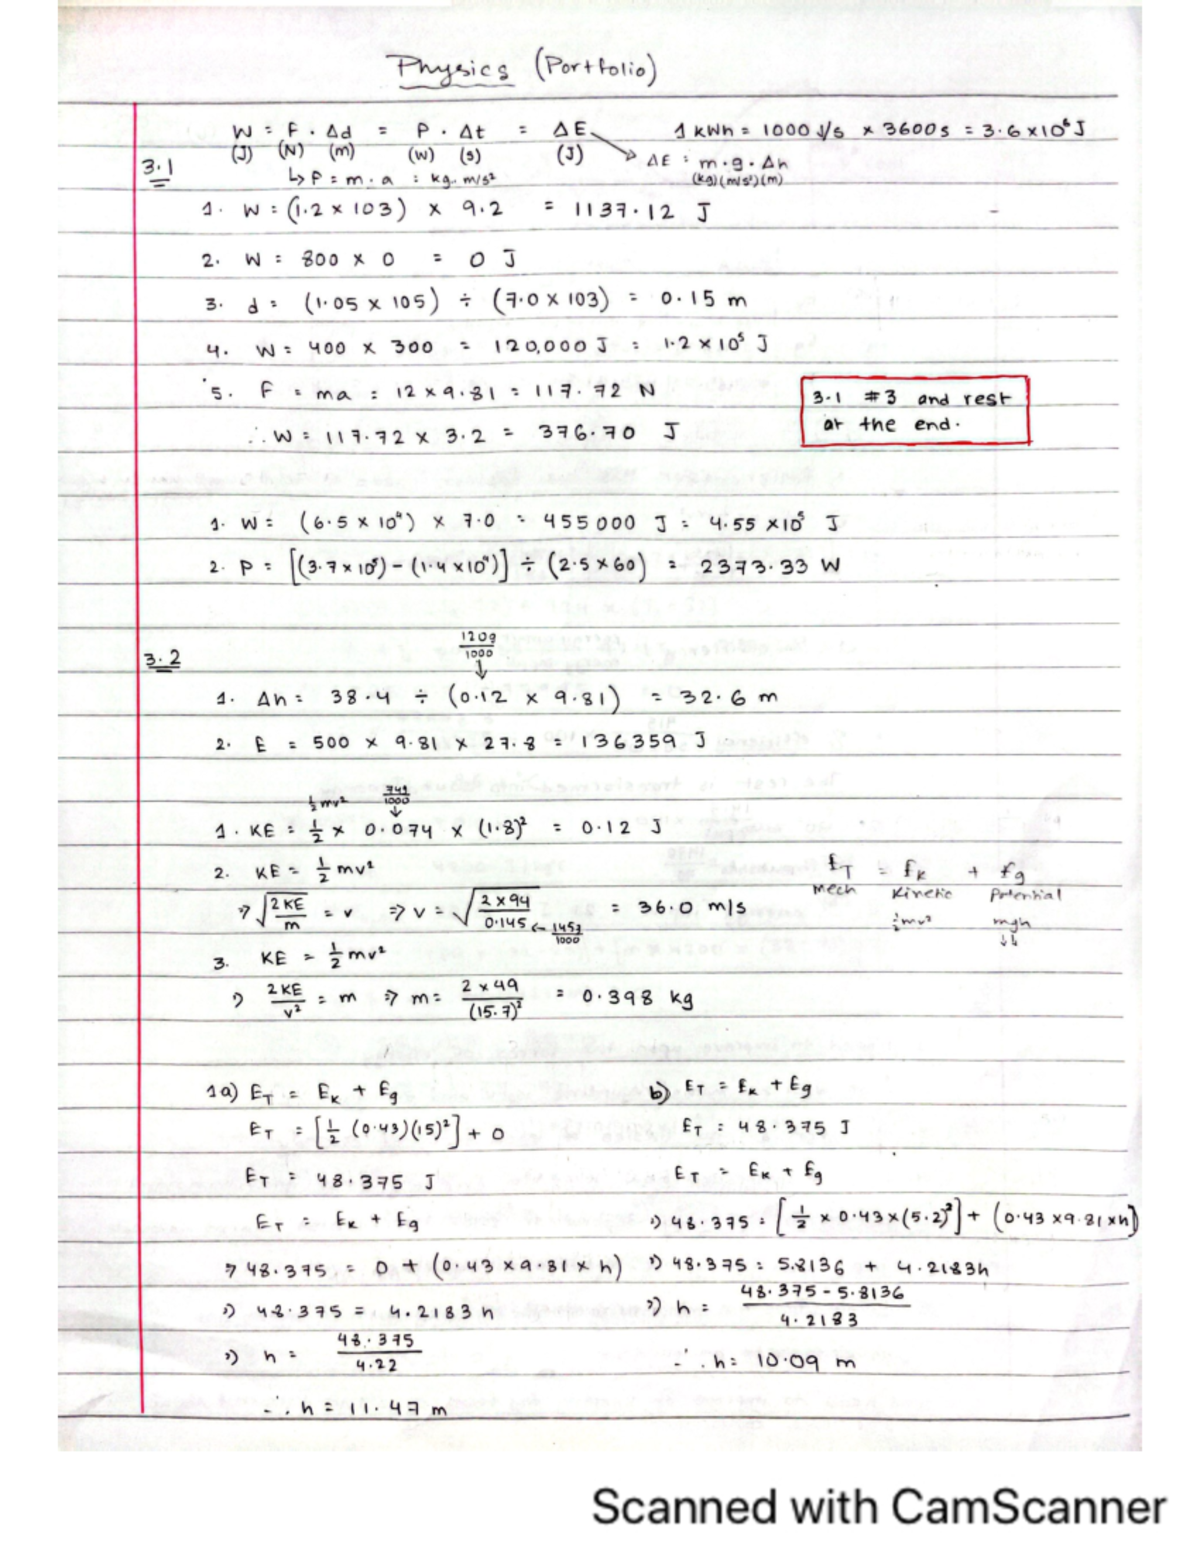 Physics (Portfolio)
W = F · Δd = P · Δt = ΔE 1 kWh = 1000 J/s × 3600s = 3.6 × 10⁶ J
(J) (N) (m) (W) (s) (J) ΔE = m · g · Δh
3.1
↳ F = m · a = kg · m/s² (kg) (m/s²) (m)
1. W = (1.2 × 103) × 9.2 = 1137.12 J
2. W = 800 × 0 = 0 J
3. d = (1.05 × 105) ÷ (7.0 × 103) = 0.15 m
4. W = 400 × 300 = 120,000 J = 1.2 × 10⁵ J
5. F = ma = 12 × 9.81 = 117.72 N
3.1 #3 and rest
at the end.
∴ W = 117.72 × 3.2 = 376.70 J
1. W = (6.5 × 10⁴) × 7.0 = 455000 J = 4.55 × 10⁵ J
2. P = [(3.7 × 10⁵) - (1.4 × 10⁴)] ÷ (2.5 × 60) = 2373.33 W
3.2
120g
1000
↓
1. Δh = 38.4 ÷ (0.12 × 9.81) = 32.6 m
2. E = 500 × 9.81 × 27.8 = 136359 J
½mv² 74g
1000
↓
1. KE = ½ × 0.074 × (1.8)² = 0.12 J
2. KE = ½ mv²
⇒ √(2KE/m) = v ⇒ v = √(2 × 94/0.145) = 36.0 m/s
← 145g/1000
3. KE = ½ mv²
⇒ 2KE/v² = m ⇒ m = 2 × 49/(15.7)² = 0.398 kg
E_T = E_K + E_g
Mech Kinetic Potential
½mv² mgh
↓↓
1a) E_T = E_K + E_g
E_T = [½ (0.43)(15)²] + 0
E_T = 48.375 J
E_T = E_K + E_g
⇒ 48.375 = 0 + (0.43 × 9.81 × h)
⇒ 48.375 = 4.2183 h
⇒ h = 48.375/4.22
∴ h = 11.47 m
b) E_T = E_K + E_g
E_T = 48.375 J
E_T = E_K + E_g
⇒ 48.375 = [½ × 0.43 × (5.2)²] + (0.43 × 9.81 × h)
⇒ 48.375 = 5.8136 + 4.2183h
⇒ h = 48.375 - 5.8136/4.2183
∴ h = 10.09 m
Scanned with CamScanner